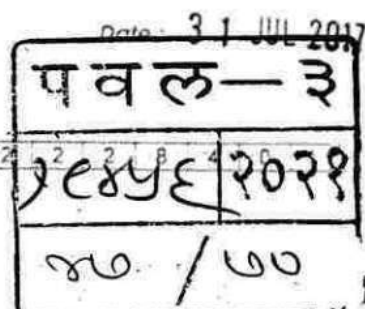 Date: 31 JUL 2017
पवल — ३
१९४५६ २०२१
४७ / ७०